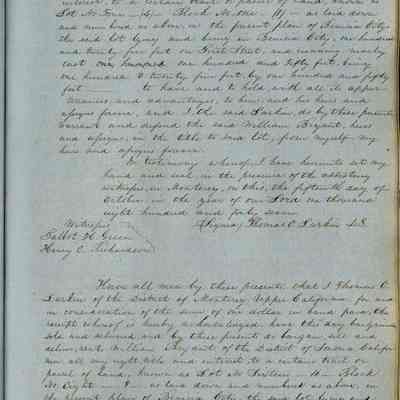 interest, to a certain tract or parcel of land, known as
Lot No Four - 4 - Block No One - 1 - as laid down
and numbered, as above, on the present plan of Benicia City
the said lot lying and being in Benicia City, one hundred
and twenty five feet on First Street, and running nearly
east one hundred and fifty feet, being
one hundred & twenty five feet, by one hundred and fifty
feet to have and to hold, with all its appur-
tenances and advantages, to him, and his heirs and
assigns forever, and I the said Larkin, do by these presents
warrant and defend the said William Bryant, heirs
and assigns, in the title to said lot, from myself my
heirs and assigns forever.
In testimony whereof I have hereunto set my
hand and seal, in the presence of the attesting
witnesses, in Monterey, on this, the fifteenth day of
October, in the year of our Lord one thousand
eight hundred and forty seven
Witnesses Signed Thomas O. Larkin L.S.
Talbot H. Green
Henry C. Richardson
Know all men by these presents that I Thomas O.
Larkin of the District of Monterey Upper California for and
in consideration of the sum of one dollar in hand paid, the
receipt whereof is hereby acknowledged, have this day bargained
sold and delivered, and by these presents do bargain sell and
deliver, unto William Bryant of the District of Sonoma Califor-
nia, all my right title and interest to a certain tract or
parcel of land, known as Lot No Sixteen - 16 - Block
No Eight - 8 - as laid down and numbered as above, in
the present plan of Benicia City, the said lot lying and